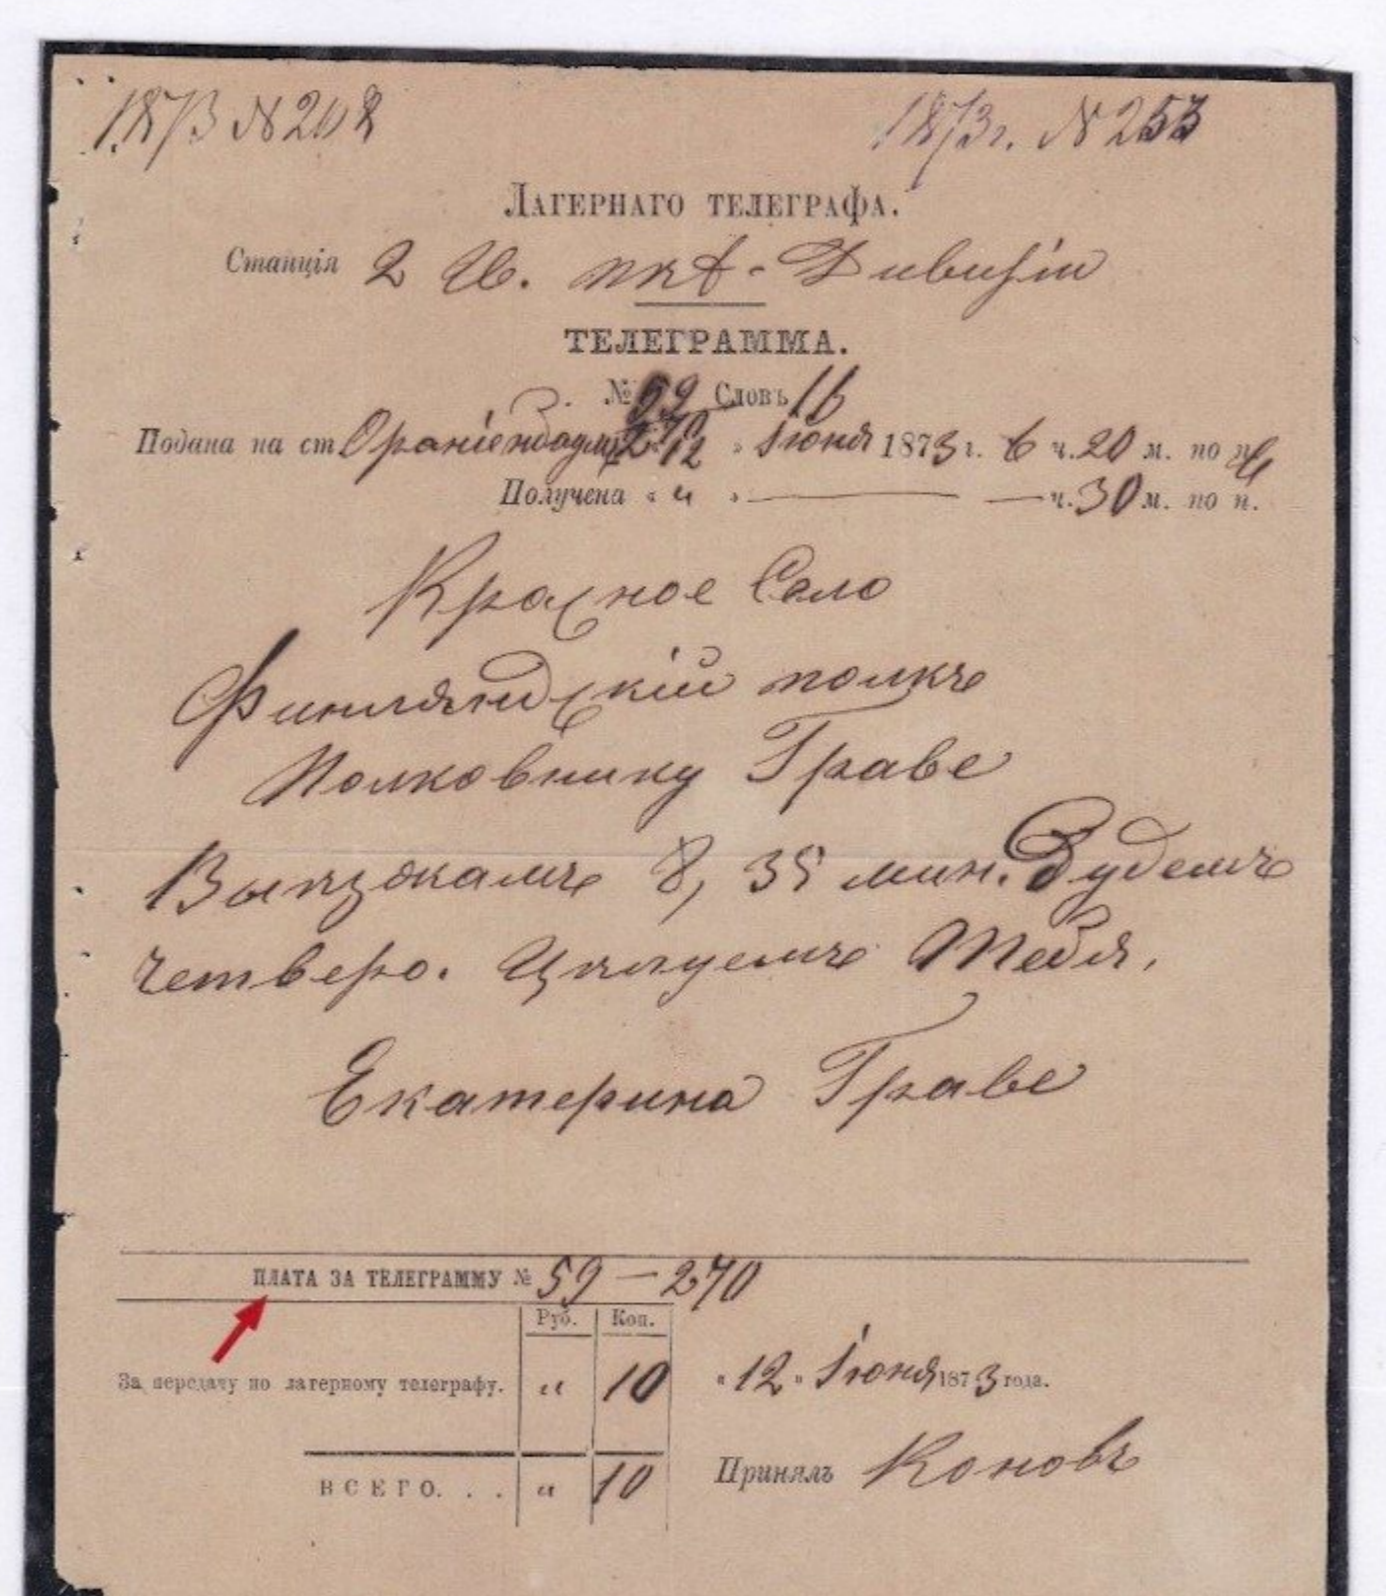 1873 № 208 1873 г. № 253
Лагернаго телеграфа.
Станція 2 Дивизіи
ТЕЛЕГРАММА.
№ 59 Словъ 16
Подана на ст Ораніенбаумъ 12 „ Іюня 1873 г. 6 ч. 20 м. по
Получена « „ » — — ч. 30 м. по п.
Красное Село
Финляндскій полкъ
Полковнику Граве
Выѣзжаемъ 8, 35 мин. Будемъ
четверо. Цѣлуемъ Тебя.
Екатерина Граве
ПЛАТА ЗА ТЕЛЕГРАММУ № 59 – 270
Руб. Коп.
За передачу по лагерному телеграфу. „ 10 „ 12 „ Іюня 1873 года.
ВСЕГО. . . „ 10 Принялъ Коновъ